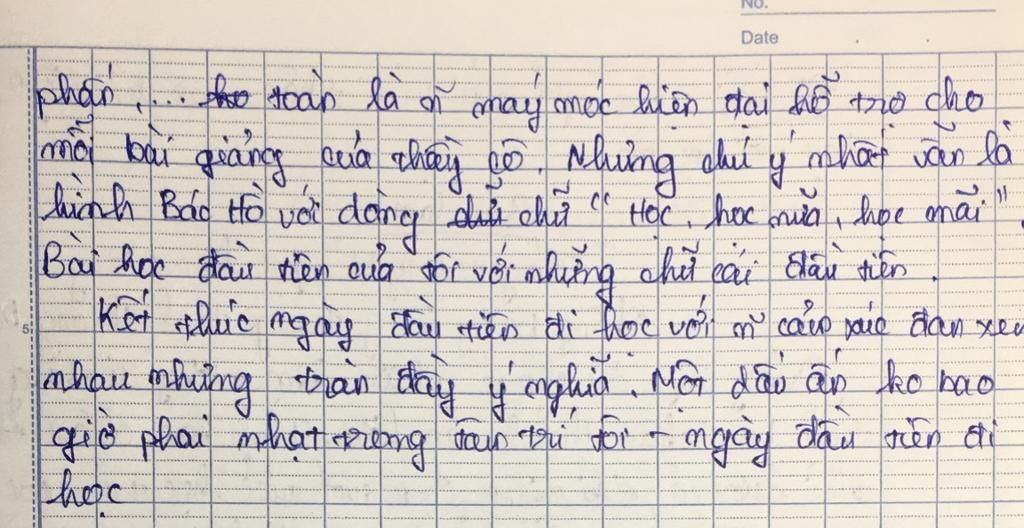 No.
Date
phấn, ... toàn là n~ máy móc hiện đại hỗ trợ cho
mỗi bài giảng của thầy cô. Nhưng chú ý nhất vẫn là
hình Bác Hồ với dòng chữ "Học, học nữa, học mãi".
Bài học đầu tiên của tôi với những chữ cái đầu tiên.
Kết thúc ngày đầu tiên đi học với n~ cảm xúc đan xen
nhau nhưng tràn đầy ý nghĩa. Một dấu ấn ko bao
giờ phai nhạt trong tâm trí tôi - ngày đầu tiên đi
học
5